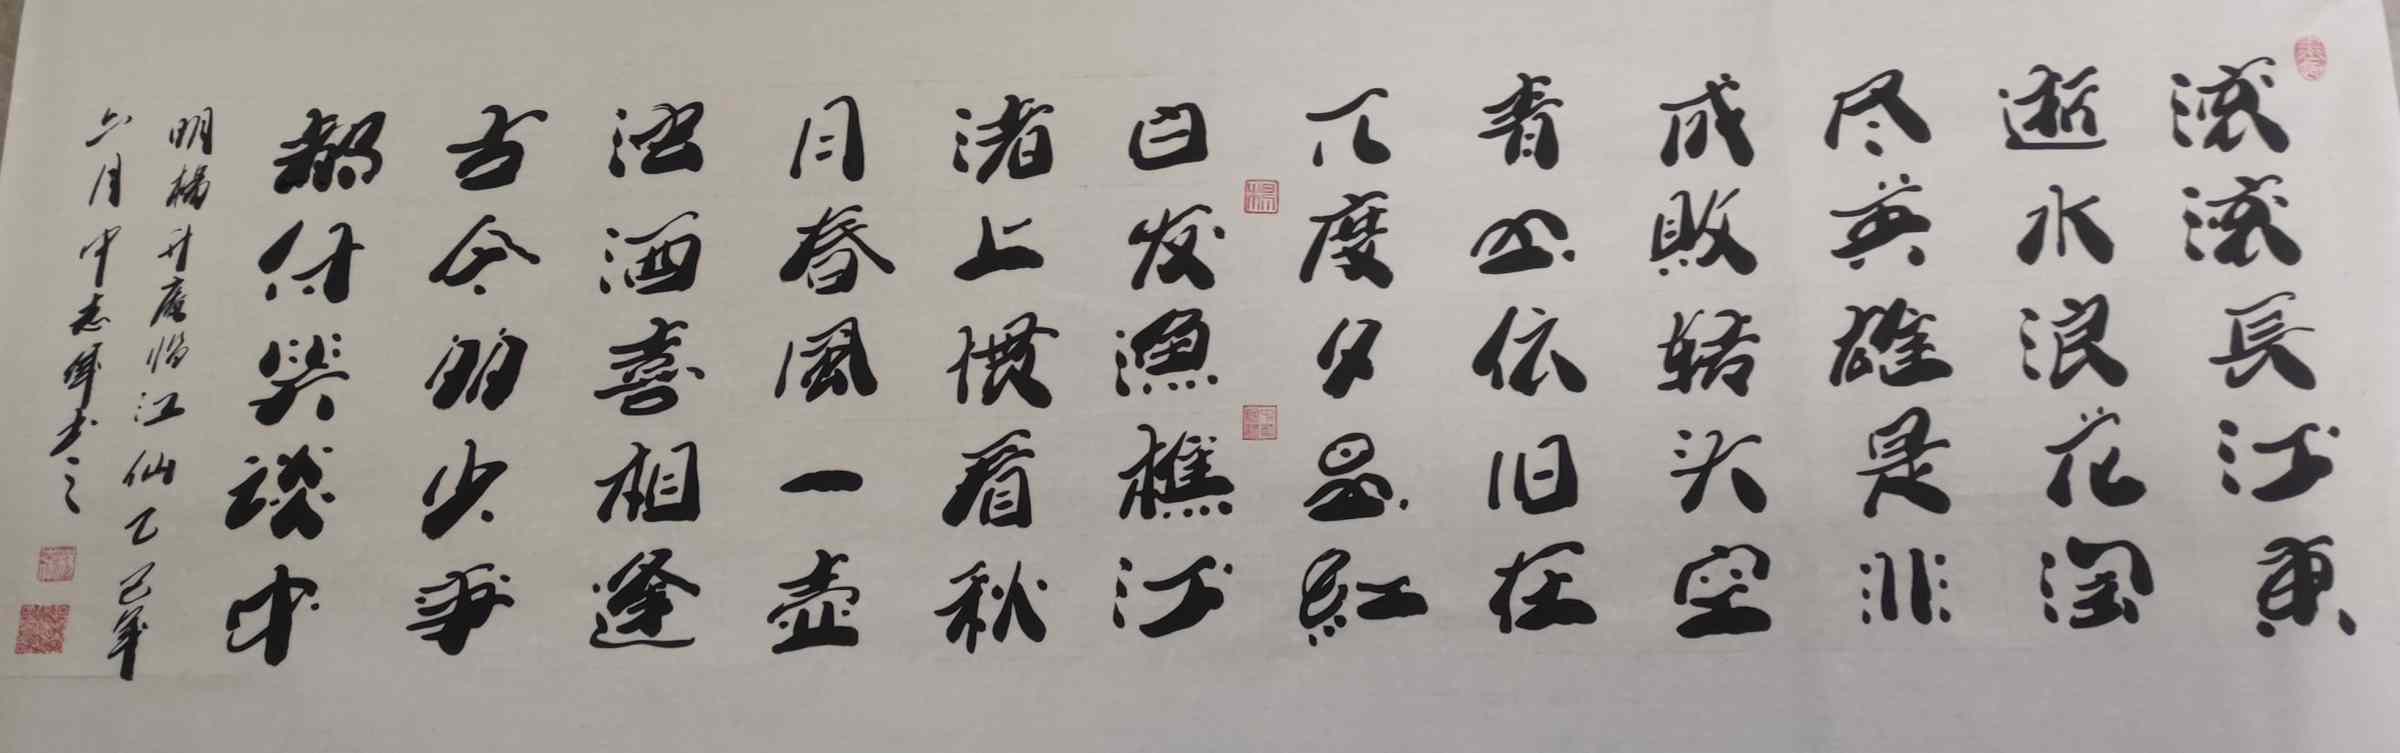 滚滚長江東
逝水浪花淘
尽英雄是非
成敗转头空
青山依旧在
几度夕阳红
白发渔樵江
渚上惯看秋
月春風一壶
浊酒喜相逢
古今多少事
都付笑谈中
明杨升庵临江仙乙巳年
六月中志辉书之